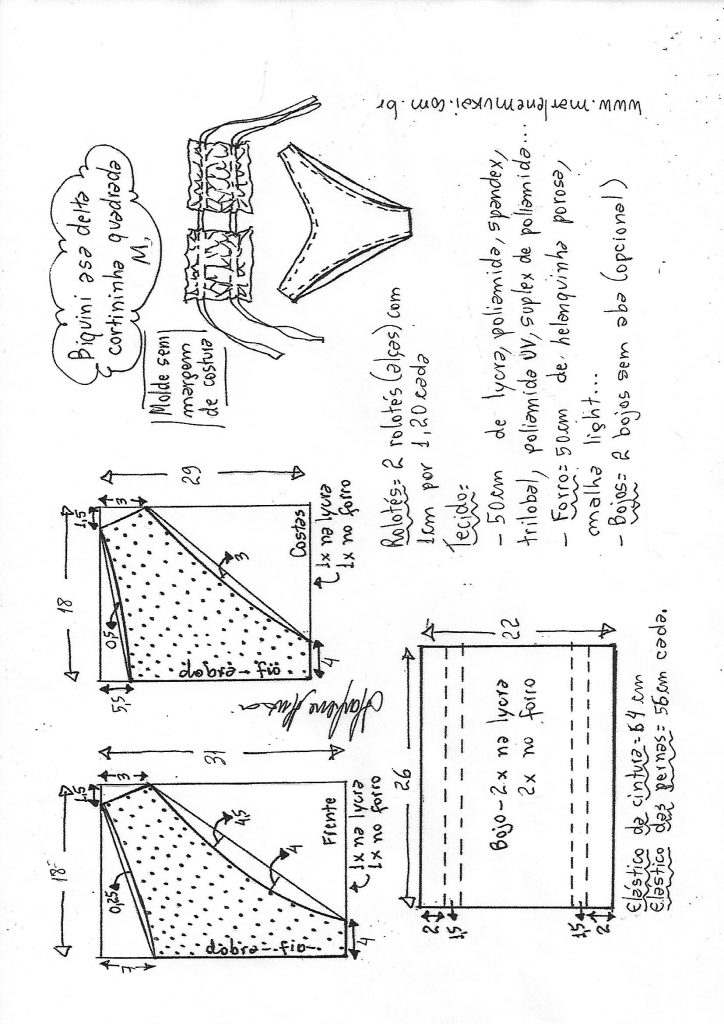 Biquini asa delta
cortininha quadrada
M,
Molde sem
margem
de costura
18
1,5
3
0,25
7
31
4,5
4
dobra = fio
4
Frente
1x na lycra
1x no forro
18
1,5
3
0,5
5,5
29
3
dobra = fio
4
Costas
1x na lycra
1x no forro
26
22
2
1,5
1,5
2
Bojo - 2x na lycra
2x no forro
Elástico da cintura = 64 cm
Elástico das pernas = 56cm cada.
Rolotês = 2 rolotês (alças) com
1cm por 1,20 cada
Tecido =
- 50cm de lycra, poliamida, spandex,
trilobal, poliamida UV, suplex de poliamida...
- Forro = 50cm de helanquinha porosa,
malha light...
- Bojos = 2 bojos sem aba (opcional)
www.marlenemukai.com.br